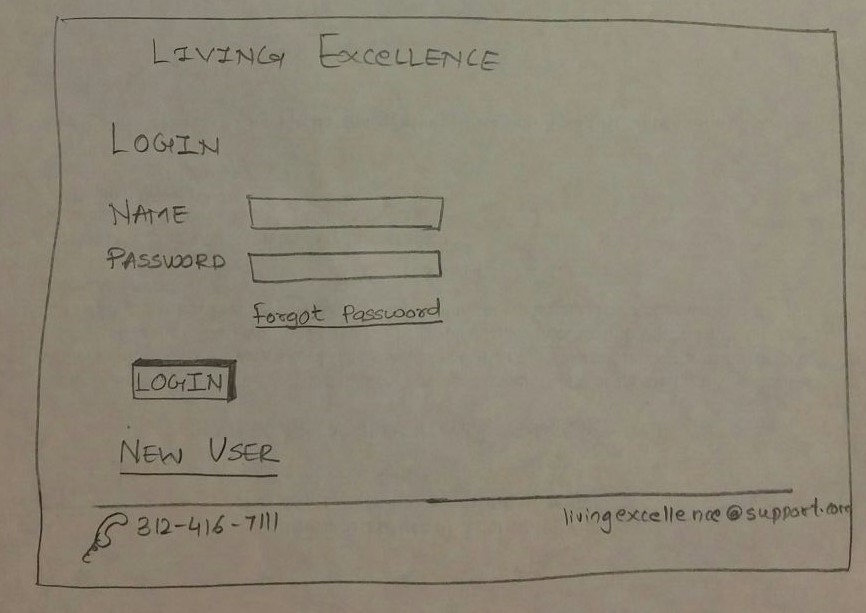 LIVING EXCELLENCE
LOGIN
NAME
PASSWORD
Forgot Password
LOGIN
NEW USER
312-416-7111 livingexcellence@support.com